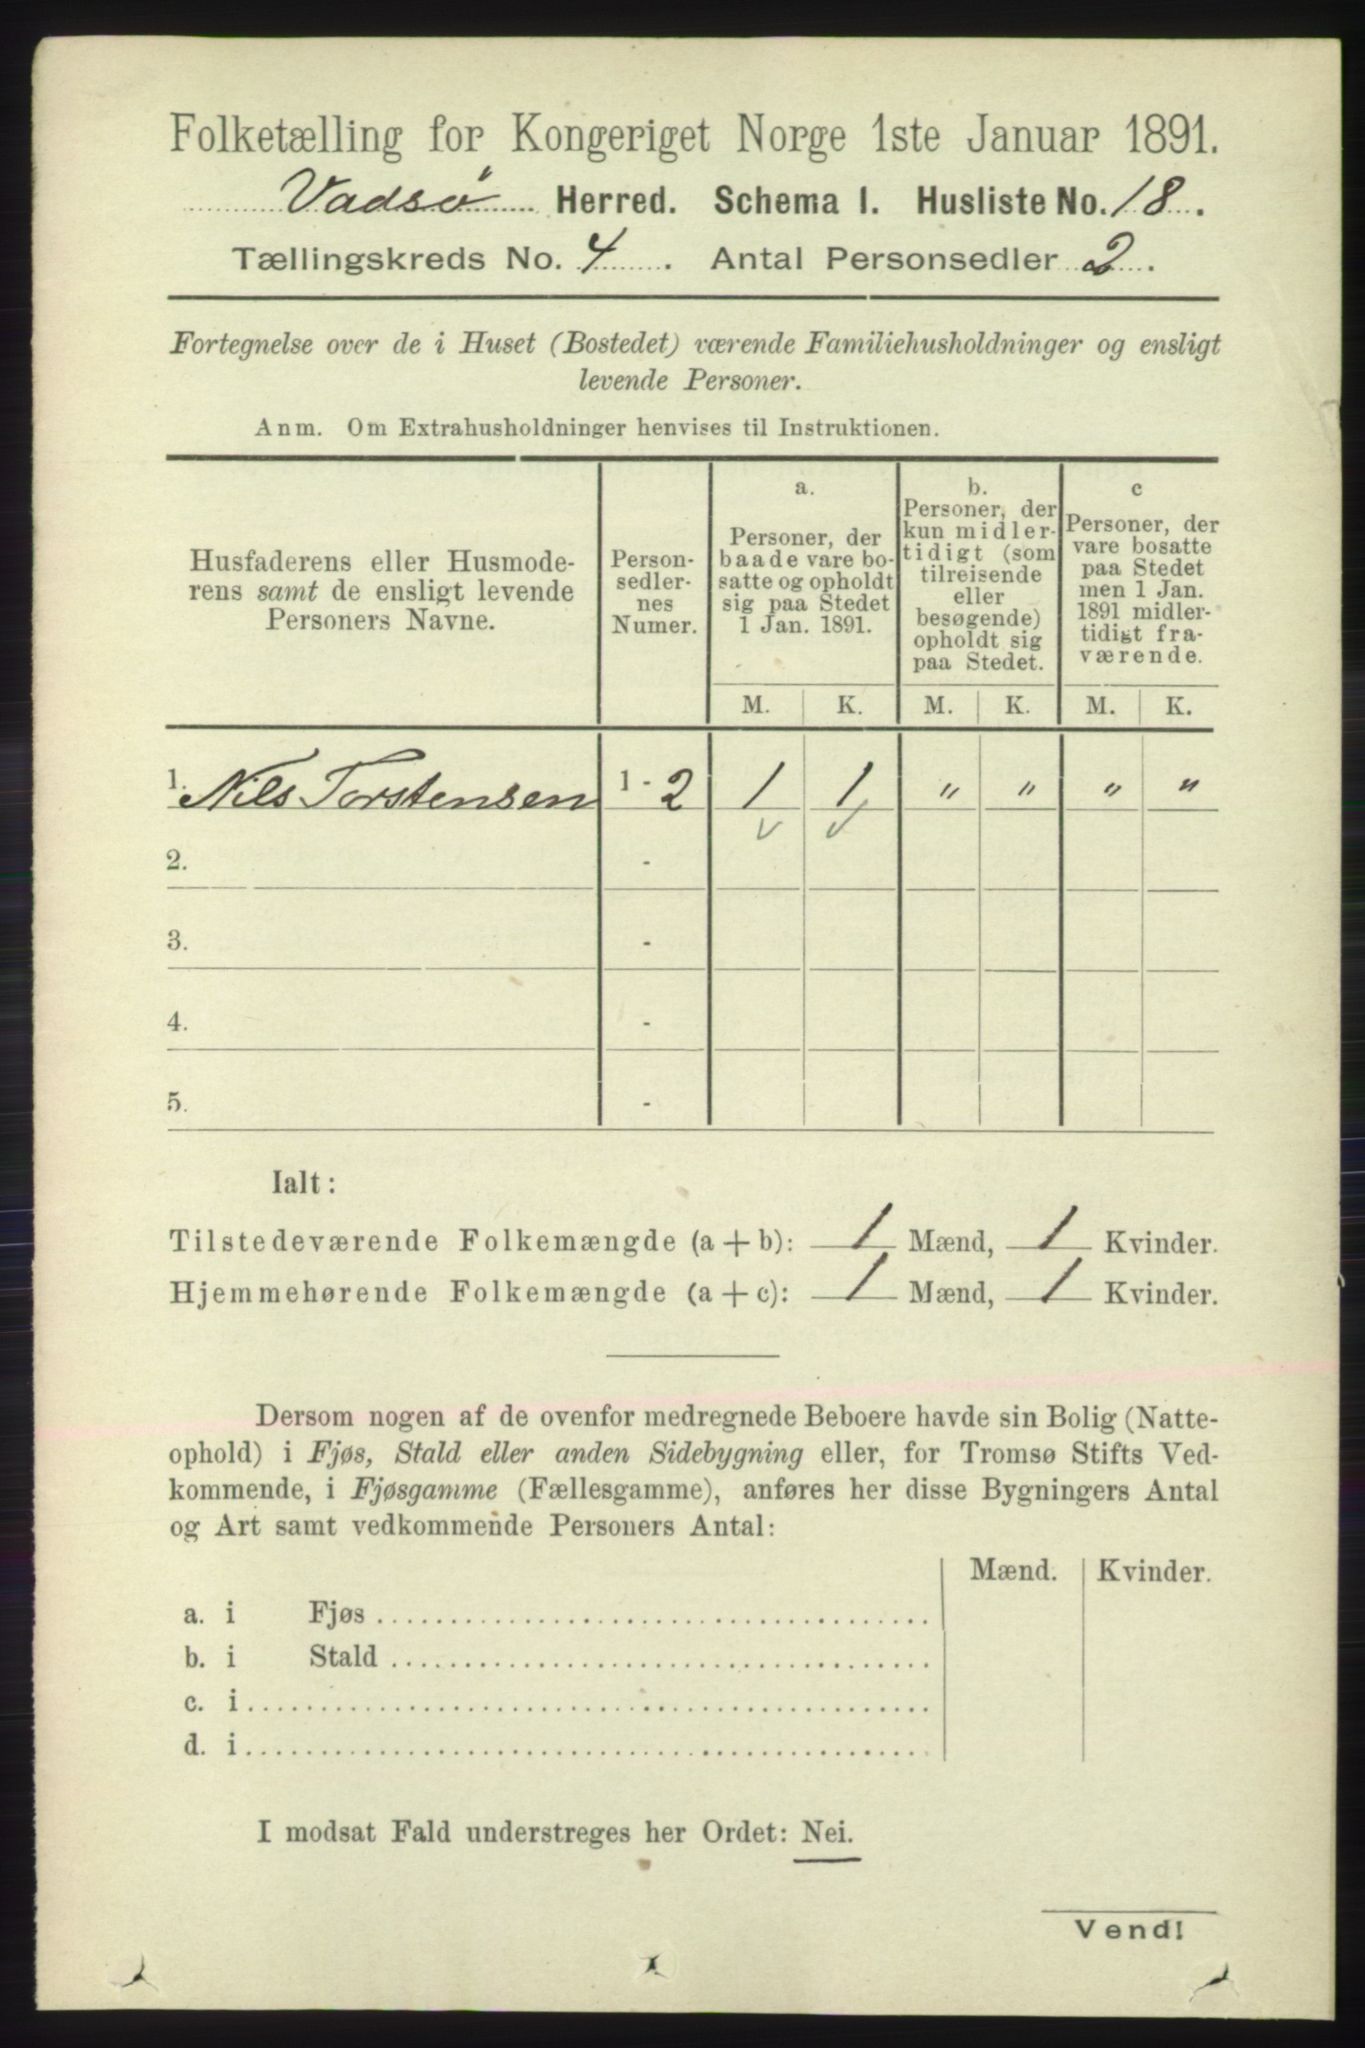 Folketælling for Kongeriget Norge 1ste Januar 1891.
Vadsø Herred. Schema I. Husliste No. 18.
Tællingskreds No. 4. Antal Personsedler 2.
Fortegnelse over de i Huset (Bostedet) værende Familiehusholdninger og ensligt
levende Personer.
Anm. Om Extrahusholdninger henvises til Instruktionen.
Husfaderens eller Husmode-
rens samt de ensligt levende
Personers Navne.
Person-
sedler-
nes
Numer.
a.
Personer, der
baade vare bo-
satte og opholdt
sig paa Stedet
1 Jan. 1891.
b.
Personer, der
kun midler-
tidigt (som
tilreisende
eller
besøgende)
opholdt sig
paa Stedet.
c
Personer, der
vare bosatte
paa Stedet
men 1 Jan.
1891 midler-
tidigt fra-
værende.
M. K. M. K. M. K.
1. Nils Torstensen 1 - 2 1 1 " " " "
2. -
3. -
4. -
5. -
Ialt:
Tilstedeværende Folkemængde (a + b): 1 Mænd, 1 Kvinder.
Hjemmehørende Folkemængde (a + c): 1 Mænd, 1 Kvinder.
Dersom nogen af de ovenfor medregnede Beboere havde sin Bolig (Natte-
ophold) i Fjøs, Stald eller anden Sidebygning eller, for Tromsø Stifts Ved-
kommende, i Fjøsgamme (Fællesgamme), anføres her disse Bygningers Antal
og Art samt vedkommende Personers Antal:
Mænd. Kvinder.
a. i Fjøs
b. i Stald
c. i
d. i
I modsat Fald understreges her Ordet: Nei.
Vend!